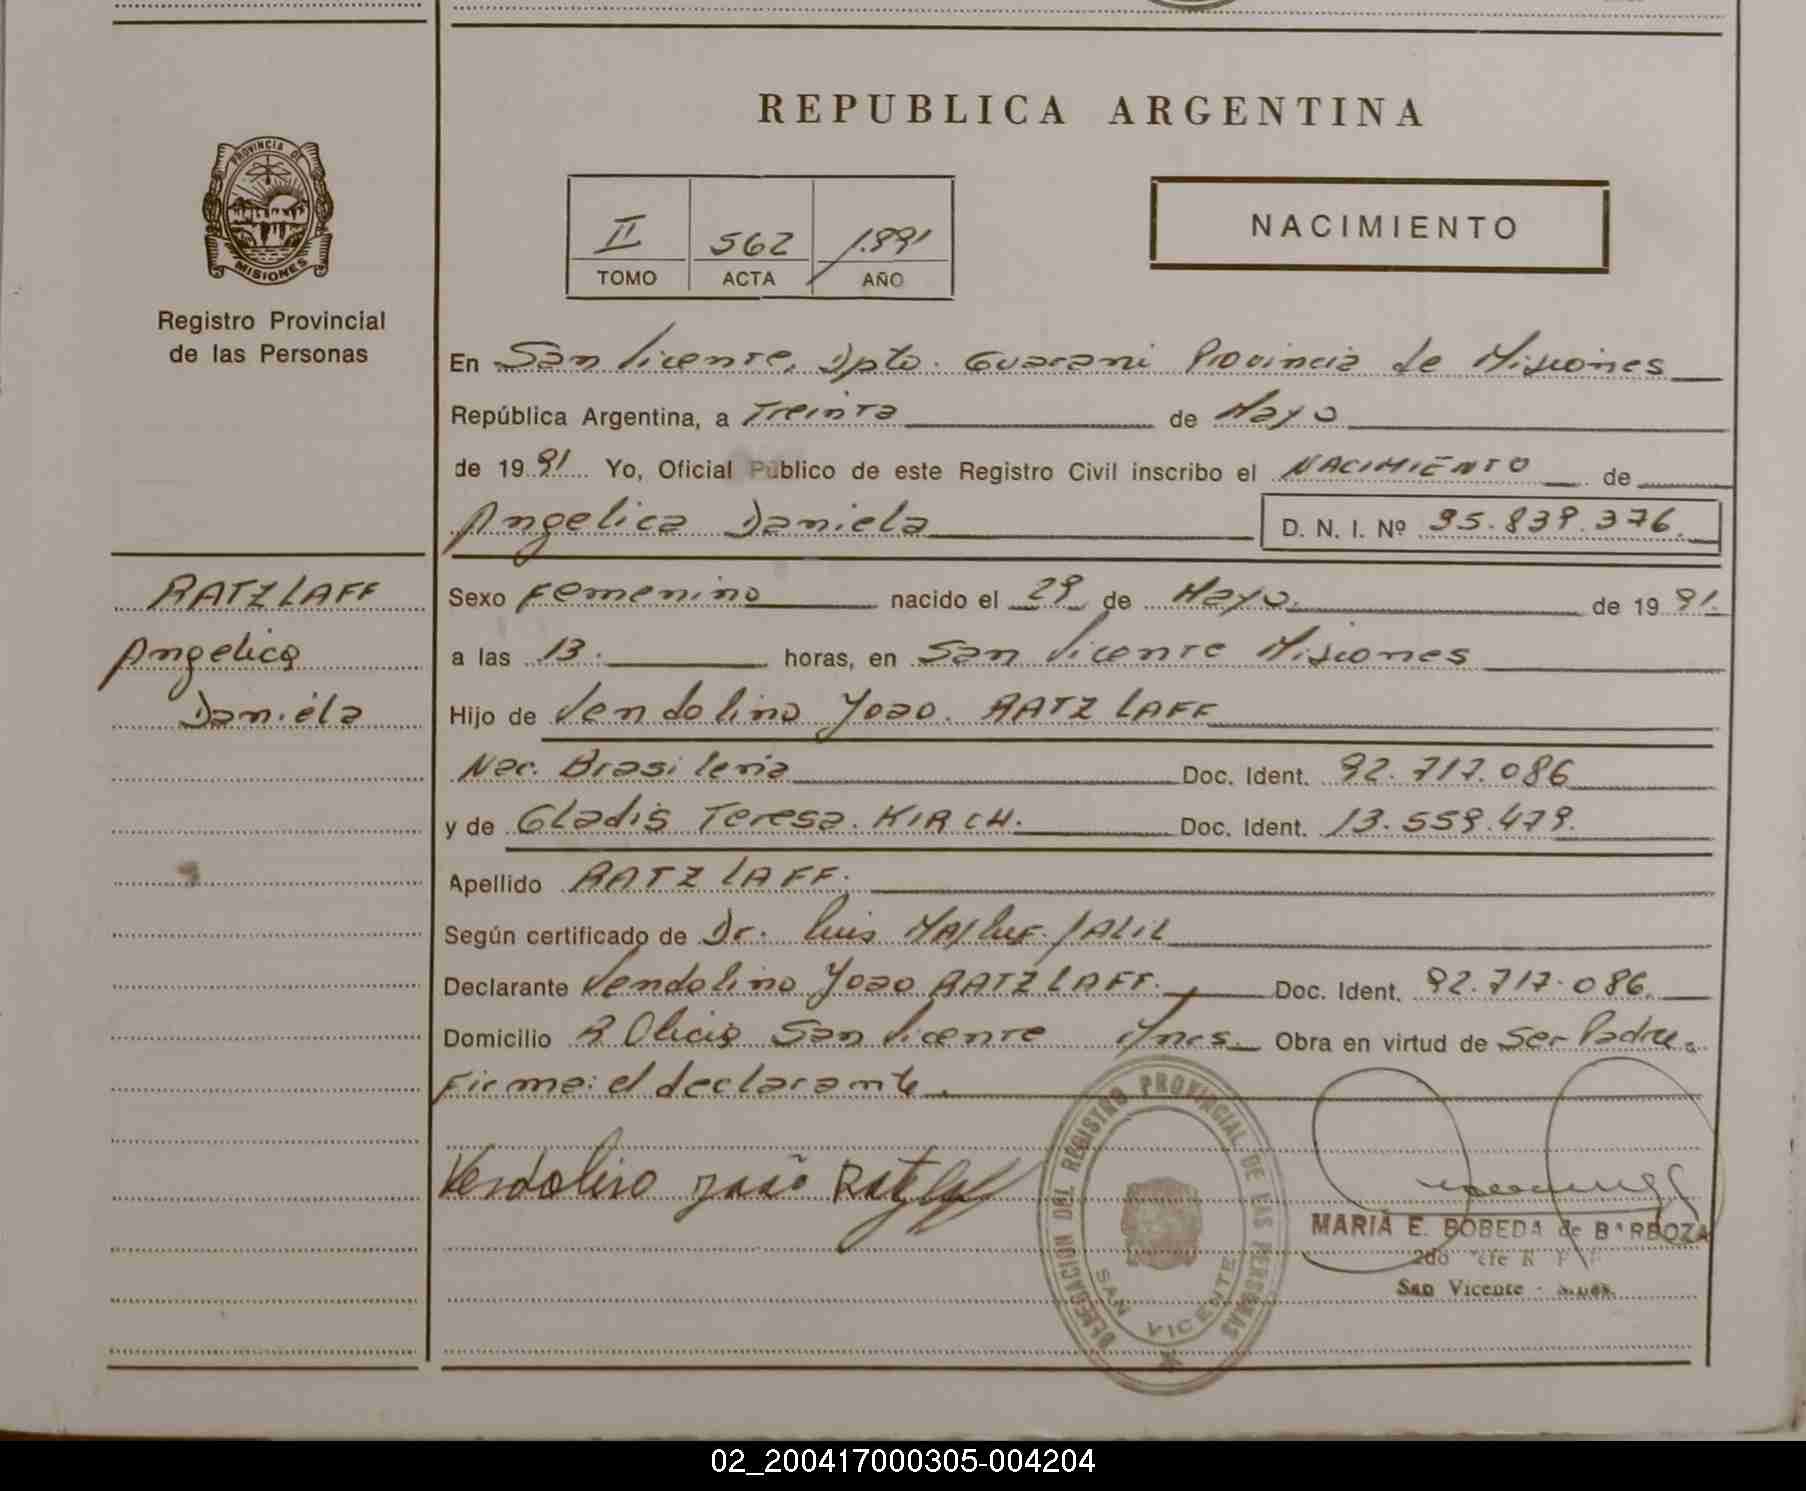 REPUBLICA ARGENTINA
PROVINCIA DE
MISIONES
Registro Provincial
de las Personas
II 562 1.991
TOMO ACTA AÑO
NACIMIENTO
En San Vicente, Dpto. Guarani Provincia de Misiones
República Argentina, a Treinta de Mayo
de 1991 Yo, Oficial Público de este Registro Civil inscribo el NACIMIENTO de
Angelica Daniela D. N. I. Nº 35.839.376.
RATZLAFF
Angelica
Daniela
Sexo Femenino nacido el 29 de Mayo. de 1991.
a las 13. horas, en San Vicente Misiones
Hijo de Vendolino Joao. RATZLAFF
Nac. Brasileria Doc. Ident. 92.717.086
y de Gladis Teresa. KIRCH. Doc. Ident. 13.559.479.
Apellido RATZLAFF.
Según certificado de Dr. Luis JALIL
Declarante Vendolino Joao RATZLAFF. Doc. Ident. 92.717.086.
Domicilio San Vicente Mnes. Obra en virtud de Ser Padre.
Firma: el declarante.
Vendolino João Ratzlaff
DELEGACION DEL REGISTRO PROVINCIAL DE LAS PERSONAS
SAN VICENTE
MARIA E. BOBEDA de BARBOZA
2do
San Vicente - Mnes.
02_200417000305-004204